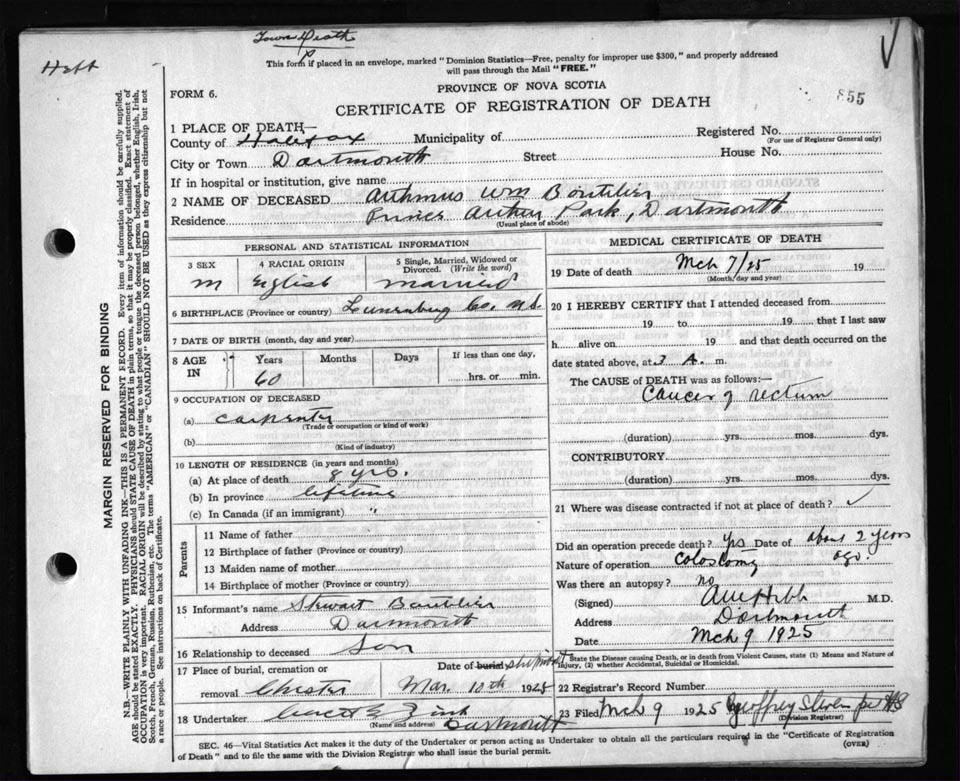 Town Death
This form if placed in an envelope, marked "Dominion Statistics—Free, penalty for improper use $300," and properly addressed
will pass through the Mail "FREE."
PROVINCE OF NOVA SCOTIA
FORM 6.
CERTIFICATE OF REGISTRATION OF DEATH
855
1 PLACE OF DEATH—
County of Halifax Municipality of Registered No.
(For use of Registrar General only)
City or Town Dartmouth Street House No.
If in hospital or institution, give name
2 NAME OF DECEASED Arthmus Wm Boutilier
Residence Prince Arthur Park, Dartmouth
(Usual place of abode)
PERSONAL AND STATISTICAL INFORMATION
3 SEX
M
4 RACIAL ORIGIN
English
5 Single, Married, Widowed or
Divorced. (Write the word)
married
6 BIRTHPLACE (Province or country) Lunenburg Co. N.S.
7 DATE OF BIRTH (month, day and year)
8 AGE IN
Years Months Days If less than one day,
60 hrs. or min.
9 OCCUPATION OF DECEASED
(a) Carpenter
(Trade or occupation or kind of work)
(b)
(Kind of industry)
10 LENGTH OF RESIDENCE (in years and months)
(a) At place of death 8 yrs.
(b) In province lifetime
(c) In Canada (if an immigrant) "
Parents
11 Name of father
12 Birthplace of father (Province or country)
13 Maiden name of mother
14 Birthplace of mother (Province or country)
15 Informant's name Stewart Boutilier
Address Dartmouth
16 Relationship to deceased Son
17 Place of burial, cremation or Date of burial shipment
removal Chester Mar. 10th 1925
18 Undertaker Zink
(Name and address) Dartmouth
MEDICAL CERTIFICATE OF DEATH
19 Date of death Mch 7/25 19
(Month, day and year)
20 I HEREBY CERTIFY that I attended deceased from
19 to 19 that I last saw
h alive on 19 and that death occurred on the
date stated above, at 3 A. m.
The CAUSE of DEATH was as follows:—
Cancer of rectum
(duration) yrs. mos. dys.
CONTRIBUTORY
(duration) yrs. mos. dys.
21 Where was disease contracted if not at place of death?
Did an operation precede death? yes Date of about 2 years
ago.
Nature of operation Colostomy
Was there an autopsy? no
(Signed) M.D.
Address Dartmouth
Date Mch 9 1925
State the Disease causing Death, or in death from Violent Causes, state (1) Means and Nature of
Injury, (2) whether Accidental, Suicidal or Homicidal.
22 Registrar's Record Number
23 Filed Mch 9 1925 Geoffrey
(Division Registrar)
SEC. 46—Vital Statistics Act makes it the duty of the Undertaker or person acting as Undertaker to obtain all the particulars required in the "Certificate of Registration
of Death" and to file the same with the Division Registrar who shall issue the burial permit.
(OVER)
MARGIN RESERVED FOR BINDING
N.B.—WRITE PLAINLY WITH UNFADING INK—THIS IS A PERMANENT RECORD. Every item of information should be carefully supplied.
AGE should be stated EXACTLY. PHYSICIANS should STATE CAUSE OF DEATH in plain terms, so that it may be properly classified. Exact statement of
OCCUPATION is very important. RACIAL ORIGIN will be described by stating to what people or tongue the deceased person belonged, whether English, Irish,
Scotch, French, German, Russian, Ruthenian, etc. The terms "AMERICAN" or "CANADIAN" SHOULD NOT BE USED as they express citizenship but not
a race or people. See instructions on back of Certificate.